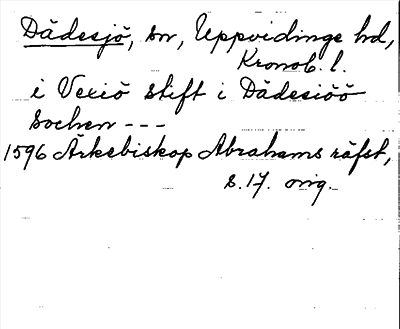 Dädesjö, sn, Uppvidinge hd,
Kronob. l.
i Vexiö stift i Dädesiöö
Sochen ---
1596 Ärkebiskop Abrahams räfst,
s. 17. orig.